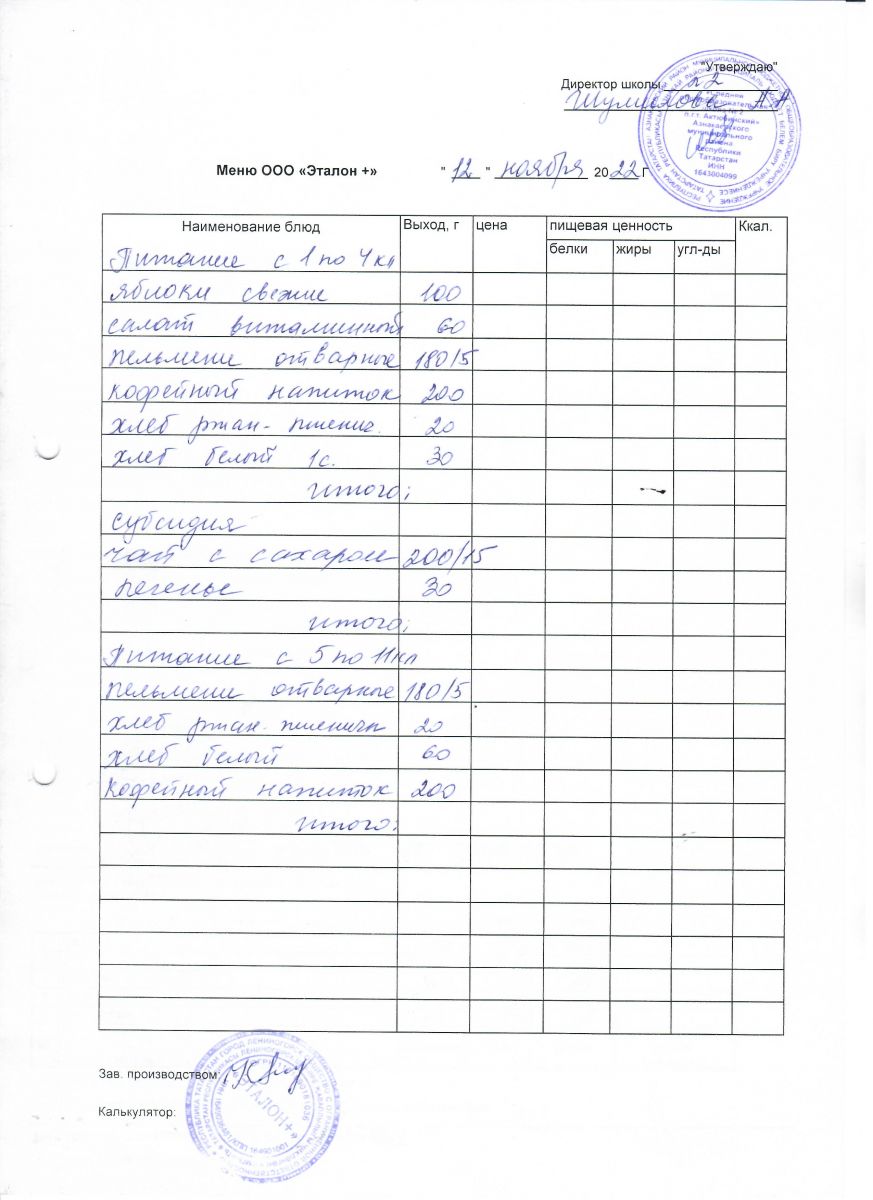 "Утверждаю"
Директор школы №2
Шулихова А А
Меню ООО «Эталон +» "12" ноября 2022 г
Средняя общеобразовательная школа № 2
п.г.т. Актюбинский»
Азнакаевского
муниципального
района
Республики
Татарстан
ИНН
1643004099
Наименование блюд Выход, г цена пищевая ценность Ккал.
белки жиры угл-ды
Питание с 1 по 4 кл
яблоки свежие 100
салат витаминный 60
пельмени отварные 180/5
кофейный напиток 200
хлеб ржан- пшенич. 20
хлеб белый 1с. 30
итого:
субсидия
чай с сахаром 200/15
печенье 30
итого:
Питание с 5 по 11кл
пельмени отварные 180/5
хлеб ржан- пшеничн 20
хлеб белый 60
кофейный напиток 200
итого:
Зав. производством:
ЭТАЛОН+
Калькулятор: